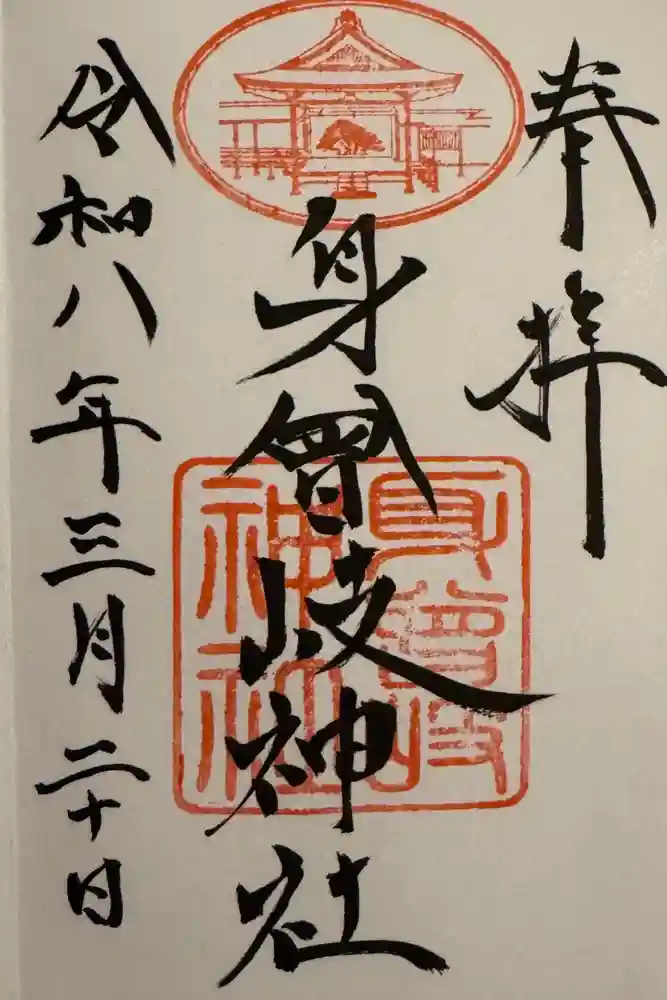 奉拝
身曾岐神社
令和八年三月二十日
身曾岐神社